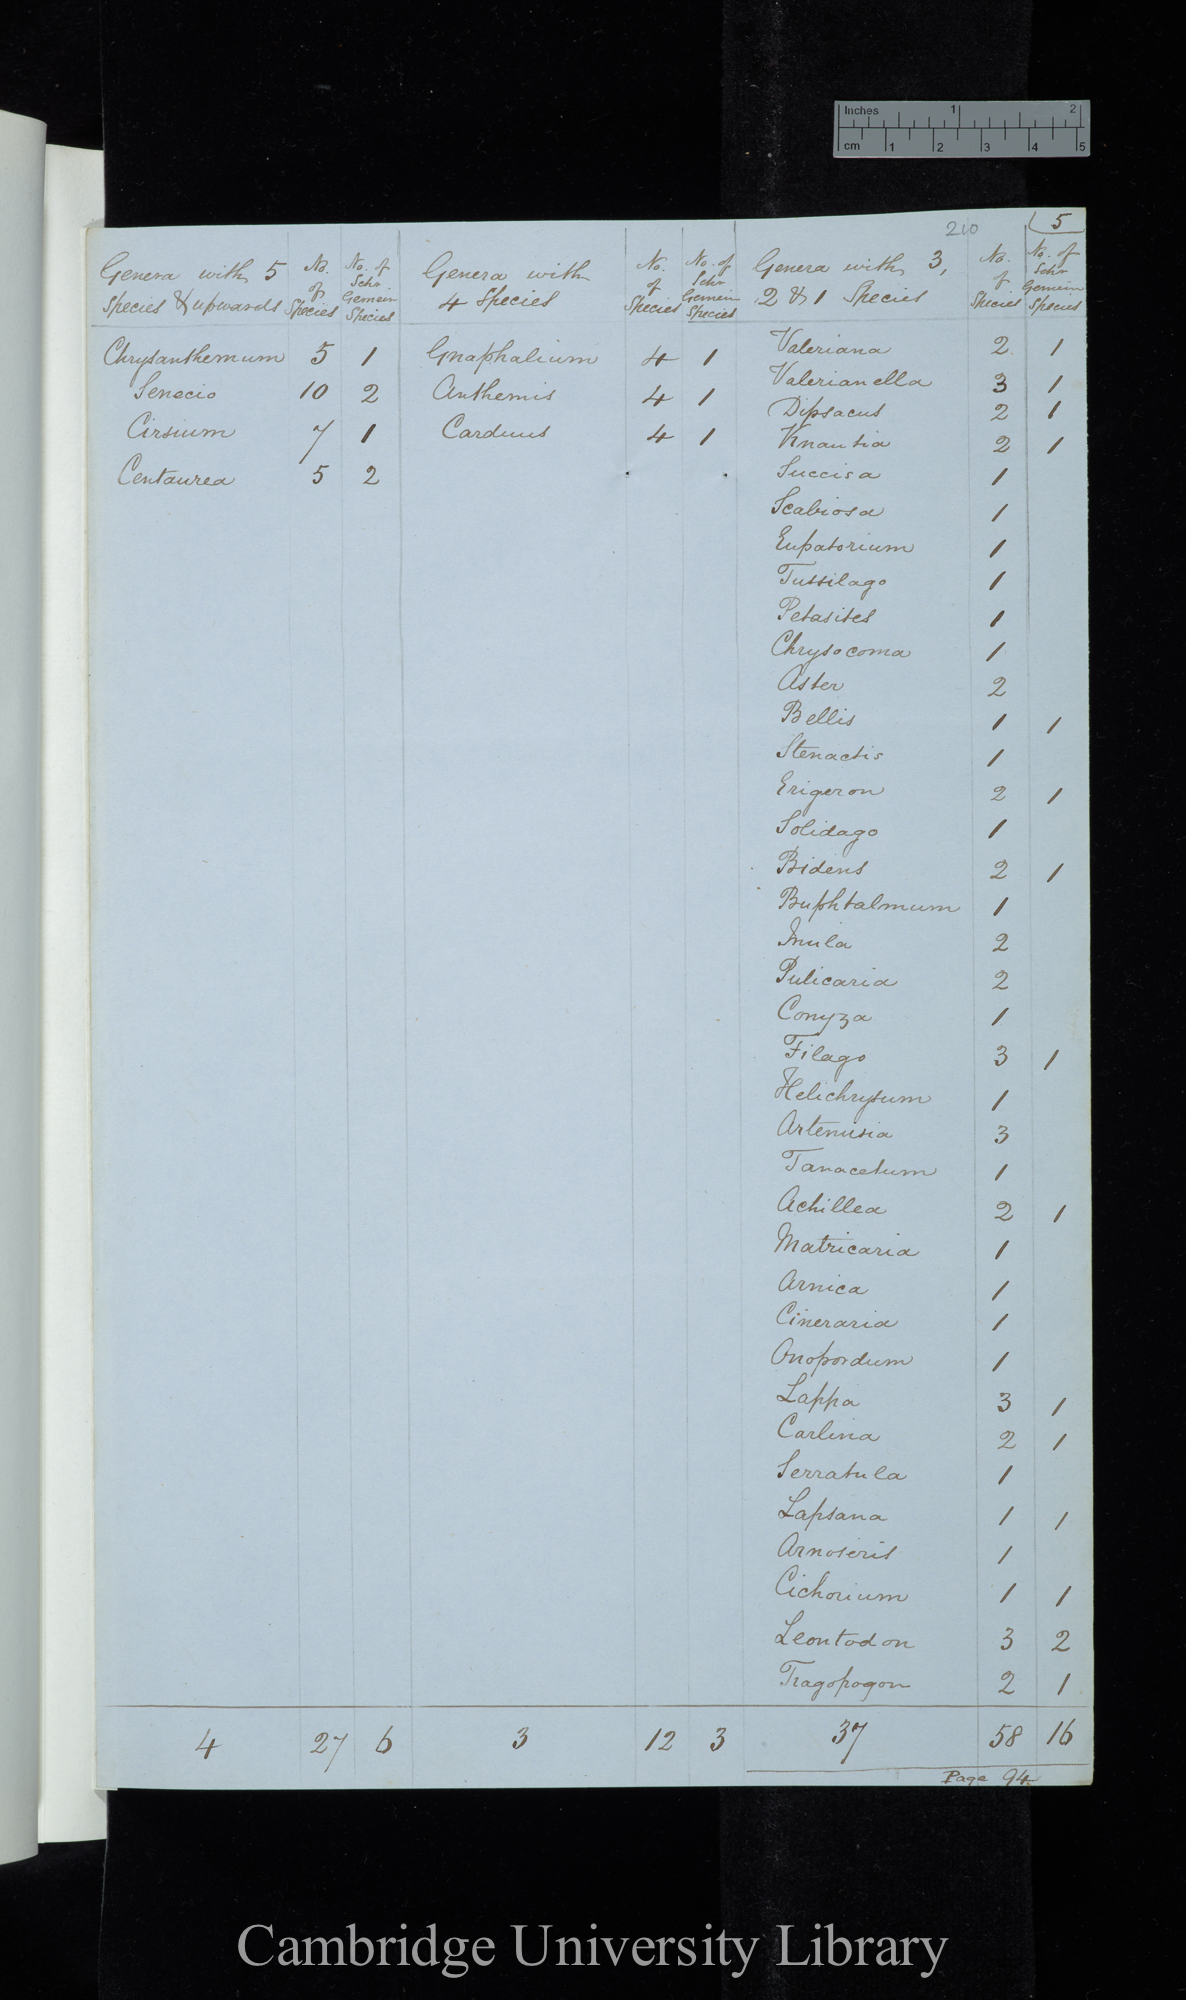 Inches 1 2
cm 1 2 3 4 5
210
5
Genera with 5 Species & upwards | No. of Species | No. of Sehr Gemein Species | Genera with 4 Species | No. of Species | No. of Sehr Gemein Species | Genera with 3, 2 & 1 Species | No. of Species | No. of Sehr Gemein Species
Chrysanthemum 5 1 Gnaphalium 4 1 Valeriana 2 1
Senecio 10 2 Anthemis 4 1 Valerianella 3 1
Dipsacus 2 1
Cirsium 7 1 Carduus 4 1 Knautia 2 1
Centaurea 5 2 Succisa 1
Scabiosa 1
Eupatorium 1
Tussilago 1
Petasites 1
Chrysocoma 1
Aster 2
Bellis 1 1
Stenactis 1
Erigeron 2 1
Solidago 1
Bidens 2 1
Buphtalmum 1
Inula 2
Pulicaria 2
Conyza 1
Filago 3 1
Helichrysum 1
Artemisia 3
Tanacetum 1
Achillea 2 1
Matricaria 1
Arnica 1
Cineraria 1
Onopordum 1
Lappa 3 1
Carlina 2 1
Serratula 1
Lapsana 1 1
Arnoseris 1
Cichorium 1 1
Leontodon 3 2
Tragopogon 2 1
4 27 6 3 12 3 37 58 16
Page 94
Cambridge University Library